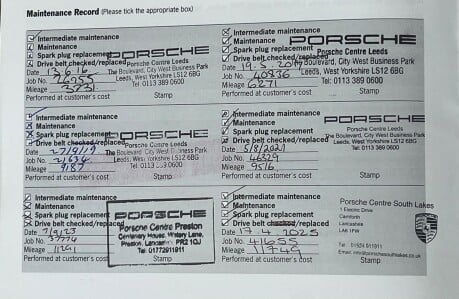 Maintenance Record (Please tick the appropriate box)
Intermediate maintenance
Maintenance
Spark plug replacement
Drive belt checked/replaced
Date 13.6.16
Job No. 26955
Mileage 3731
Performed at customer's cost
PORSCHE
Porsche Centre Leeds
The Boulevard, City West Business Park
Leeds, West Yorkshire LS12 6BG
Tel: 0113 389 0600
Stamp
Intermediate maintenance
Maintenance
Spark plug replacement
Drive belt checked/replaced
Date
Job No. 40836
Mileage 6271
Performed at customer's cost
PORSCHE
Porsche Centre Leeds
The Boulevard, City West Business Park
Leeds, West Yorkshire LS12 6BG
Tel: 0113 389 0600
Stamp
Intermediate maintenance
Maintenance
Spark plug replacement
Drive belt checked/replaced
Date 27/9/19
Job No. 21634
Mileage 9187
Performed at customer's cost
PORSCHE
Porsche Centre Leeds
The Boulevard, City West Business Park
Leeds, West Yorkshire LS12 6BG
Tel: 0113 389 0600
Stamp
Intermediate maintenance
Maintenance
Spark plug replacement
Drive belt checked/replaced
Date 5/8/2021
Job No. 46329
Mileage 9516
Performed at customer's cost
PORSCHE
Porsche Centre Leeds
The Boulevard, City West Business Park
Leeds, West Yorkshire LS12 6BG
Tel: 0113 389 0600
Stamp
Intermediate maintenance
Maintenance
Spark plug replacement
Drive belt checked/replaced
Date 7/9/23
Job No. 37774
Mileage
Performed at customer's cost
PORSCHE
Porsche Centre Preston
Centenary House, Watery Lane,
Preston, Lancashire PR2 1OJ
Tel: 01772911911
Stamp
Intermediate maintenance
Maintenance
Spark plug replacement
Drive belt checked/replaced
Date 17.4.2025
Job No. 41655
Mileage 11749
Performed at customer's cost
Porsche Centre South Lakes
1 Electric Drive
Carnforth
Lancashire
LA6 1FW
Tel: 01524 911911
Stamp